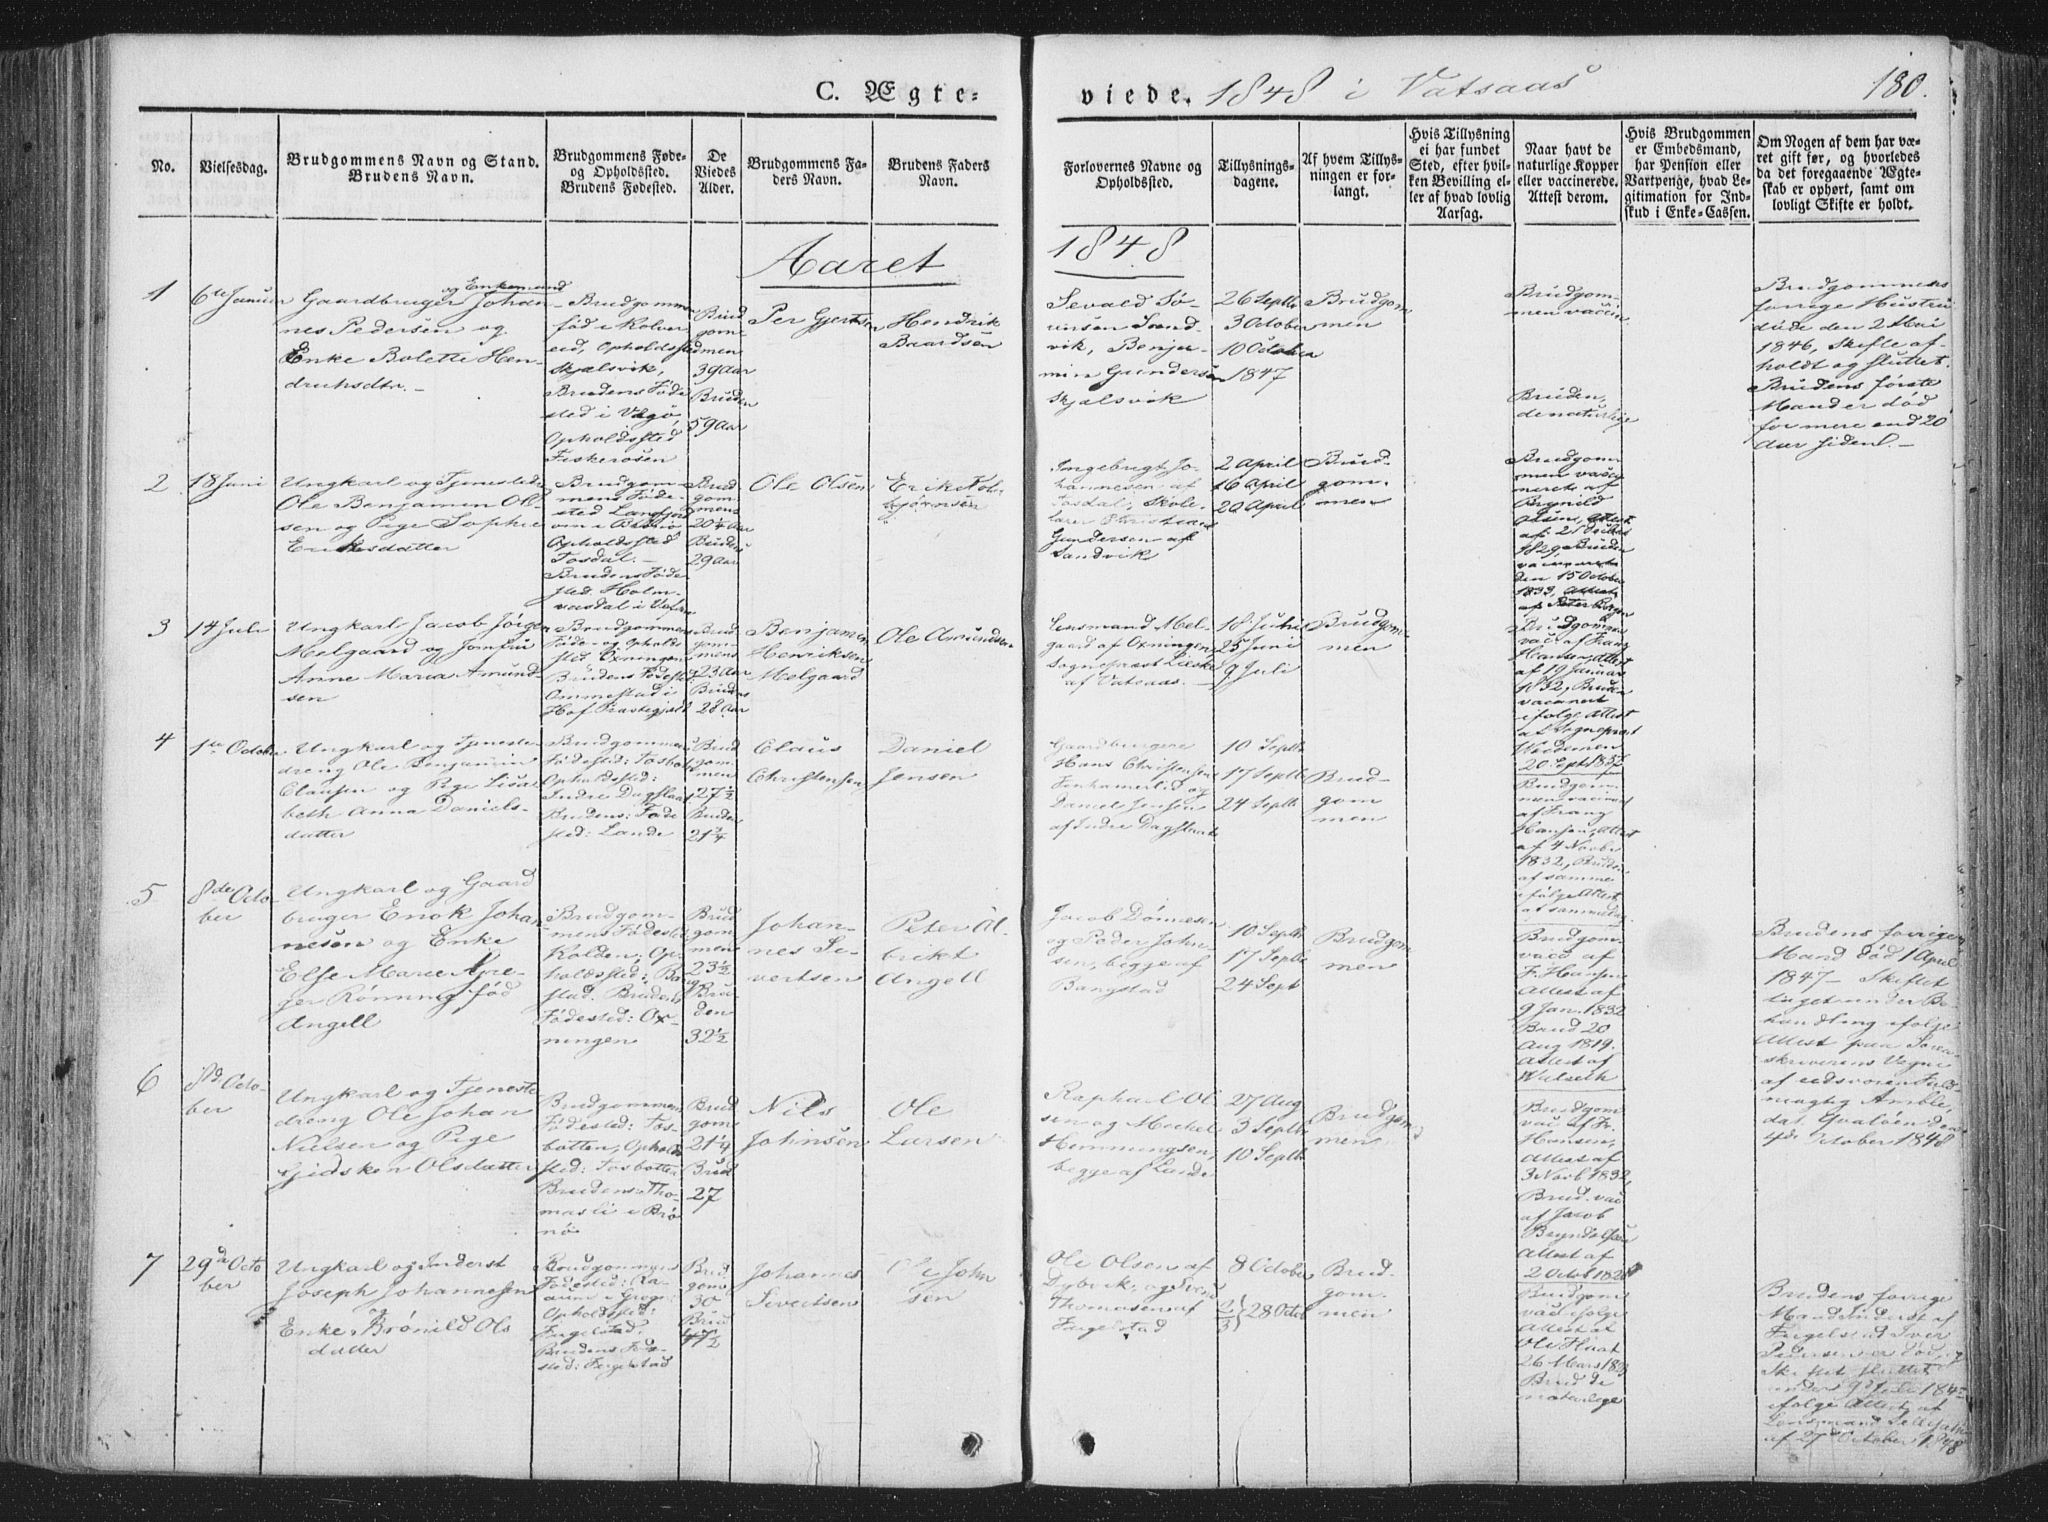 C. Ægte-
viede. 1848 i Vatsaas
180.
No.
Vielsesdag.
Brudgommens Navn og Stand.
Brudens Navn.
Brudgommens Føde-
og Opholdssted.
Brudens Fødested.
De
Viedes
Alder.
Brudgommens Fa-
ders Navn.
Brudens Faders
Navn.
Forlovernes Navne og
Opholdssted.
Tillysnings-
dagene.
Af hvem Tillys-
ningen er for-
langt.
Hvis Tillysning
ei har fundet
Sted, efter hvil-
ken Bevilling el-
ler af hvad lovlig
Aarsag.
Naar havt de
naturlige Kopper
eller vaccinerede.
Attest derom.
Hvis Brudgommen
er Embedsmand,
har Pension eller
Vartpenge, hvad Le-
gitimation for Ind-
skud i Enke-Cassen.
Om Nogen af dem har væ-
ret gift før, og hvorledes
da det foregaaende Ægte-
skab er ophørt, samt om
lovligt Skifte er holdt.
Aaret
1848
1
6te Januar
og Enkemand
Gaardbruger Johan-
nes Pedersen og
Enke Bolette Hen-
driksdtr. -
Brudgommen
fød i Kolver
eid, Opholdssted
Skjelsvik,
Brudens Føde
sted i Vegø,
Opholdssted
Fiskerosen
Brud
gom
men
39 Aar
Bruden
59 Aar
Per Gjertsen
Hendrik
Baardsen
Sevald Sö-
rensen Sand-
vik, Benja-
min Gundersen
Skjelsvik
26 Septb
3 October
10 October
1847
Brudgom
men
Brudgom-
men vaccin
Bruden,
de naturlige
Brudgommens
forrige Hustru
døde den 2 Mai
1846, Skifte af-
holdt og sluttet.
Brudens første
Mand er død
for mere end 20
Aar siden. -
2
18 Juni
Ungkarl og Tjenestedr
Ole Benjamen Ol-
sen og Pige Sophie
Eriksdatter
Brudgom-
mens Føde-
sted Langfjord
Opholdssted
Tosdal. -
Brudens Føde
sted Holm-
vasdal i Vefsn
Brud
gom-
mens
20 1/4 Aar
Brudens
29 Aar
Ole Olsen
Erik Kol-
bjørnsen
Ingebrigt Jo-
hannesen af
Tosdal, Skole-
lærer Christian
Gundersen af
Sandvik
2 April
16 April
20 April
Brud-
gom-
men
Brudgom-
men vacci
neret af
Olsen, Attest
1829, Bruden
den 15 October
1833, Attest
3
14 Juli
Ungkarl Jacob Jörgen
Melgaard og Jomfru
Anne Maria Amund-
sen
Brudgommens
Føde- og Opholds
sted Oxningen
Brudens Fødested
Ommestad i
Hof Præstegjeld
Brud-
gom-
mens
23 Aar
Brudens
28 Aar
Benjamin
Henriksen
Melgaard
Ole Amundsen
Lensmand Mel-
gaard af Oxningen,
Sognepræst
af Vatsaas. -
18 Juni
25 Juni
9 Juli
Brudgom-
men
Brudgommen
vac. af Franz
Hansen, Attest
af 19 Januar
1832, Bruden
vaccineret
ifølge Attest
af Sognepræst
20 Sept 1837
4
1te October
Ungkarl og Tjeneste-
dreng Ole Benjamin
Clausen og Pige Lisa-
beth Anna Daniels-
datter
Brudgommens
Fødested: Tosbotn
Opholdssted:
Indre Dagslaat
Brudens Føde
sted: Lande
Brud
gom-
men
27 1/2
Bruden
21 3/4
Claus
Christensen
Daniel
Jensen
Gaardbrugere
Hans Christensen
og
Daniel Jensen
af Indre Dagslaat
10 Septb
17 Septb
24 Septb
Brud-
gom
men
Brudgom-
men vaccined
af Franz
Hansen, Attest
af 4 Novbr
1832, Bruden
af samme
ifølge Attest
af samme dag
5
8de Octo-
ber
Ungkarl og Gaard
bruger Enok Johan
nesen og Enke
Else Marie Gre-
ger Rønning fød
Angell
Brudgom-
mens Fødested
Kolden, Op-
holdssted: Bang-
stad. Brudens
Fødested: Ox-
ningen
Brud
gom
men
23 1/2
Bru-
den
32 1/2
Johan-
nes Si-
vertsen
Peter Al-
brikt
Angell
Jacob Dønnesen
og Peder John-
sen, begge af
Bangstad
10 Septb
17 Septb
24 Sept
Brudgom-
men
Brudgom
vacc af
F. Hansen
Attest af
9 Jan. 1832
Brud 20
Aug 1819.
Attest af
Brudens forrige
Mand død 1 April
1847 - Skiftet
taget under Be-
handling ifølge
Attest paa Soren-
skriverens Vegne
af edsvoren Fuld
mægtig Amble,
dat. Qvaløen den
4de October 1848
6
8de Octo-
ber
Ungkarl og Tjeneste
dreng Ole Johan
Nielsen og Pige
Gidsken Olsdatter
Brudgommens
Fødested: Tos-
botten, Opholds
sted: Tosbotten
Brudens: Tho-
masli i Brø
nø
Brud
gom
21 1/4
Brud
27
Nils
Johnsen
Ole
Larsen
Raphael Ol
sen og Mickel
Hemmingsen,
begge af Lande
27 Aug
3 Septb
10 Septb
Brudgom
men
Brudgom
vac af Fr.
Hansen,
Attest af
3 Novb 1832,
Brud. vac
af Jacob
Attest af
2 Octob 1828
7
29de Octo
ber
Ungkarl og Inderst
Joseph Johannesen
og
Enke Brønild Ols
datter
Brudgommens
Fødested:
Opholdssted:
Fergelstad.
Brudens Føde-
sted: Fergelstad
Brud
gom
30
Brud
47 1/2
Johannes
Sivertsen
Ole John
sen
Ole Olsen af
Dybvik, og Svend
Thomasen af
Fergelstad
8 October
2/3 } 28 Octob
Brud-
gom-
men
Brudgom
vac ifølge
Attest af
Ole Huat
26 Mars
Brud de
naturlige
Brudens forrige
Mand Inderst af
Fergelstad Iver
Pedersen er død, og
Skiftet sluttet
under 9de Juli
ifølge Attest af
Lensmand
af 27de October 1848